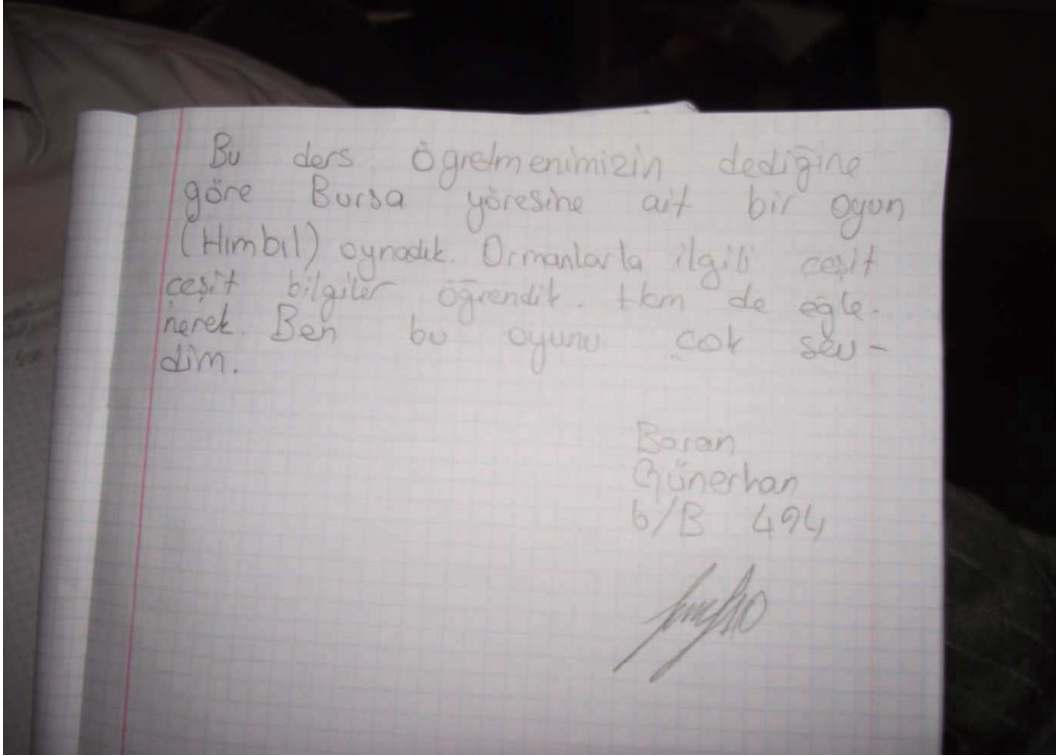 Bu ders öğretmenimizin dediğine
göre Bursa yöresine ait bir oyun
(Hımbıl) oynadık. Ormanlarla ilgili çeşit
çeşit bilgiler öğrendik. Hem de eğle-
nerek. Ben bu oyunu çok sev-
dim.
Baran
Günerhan
6/B 494